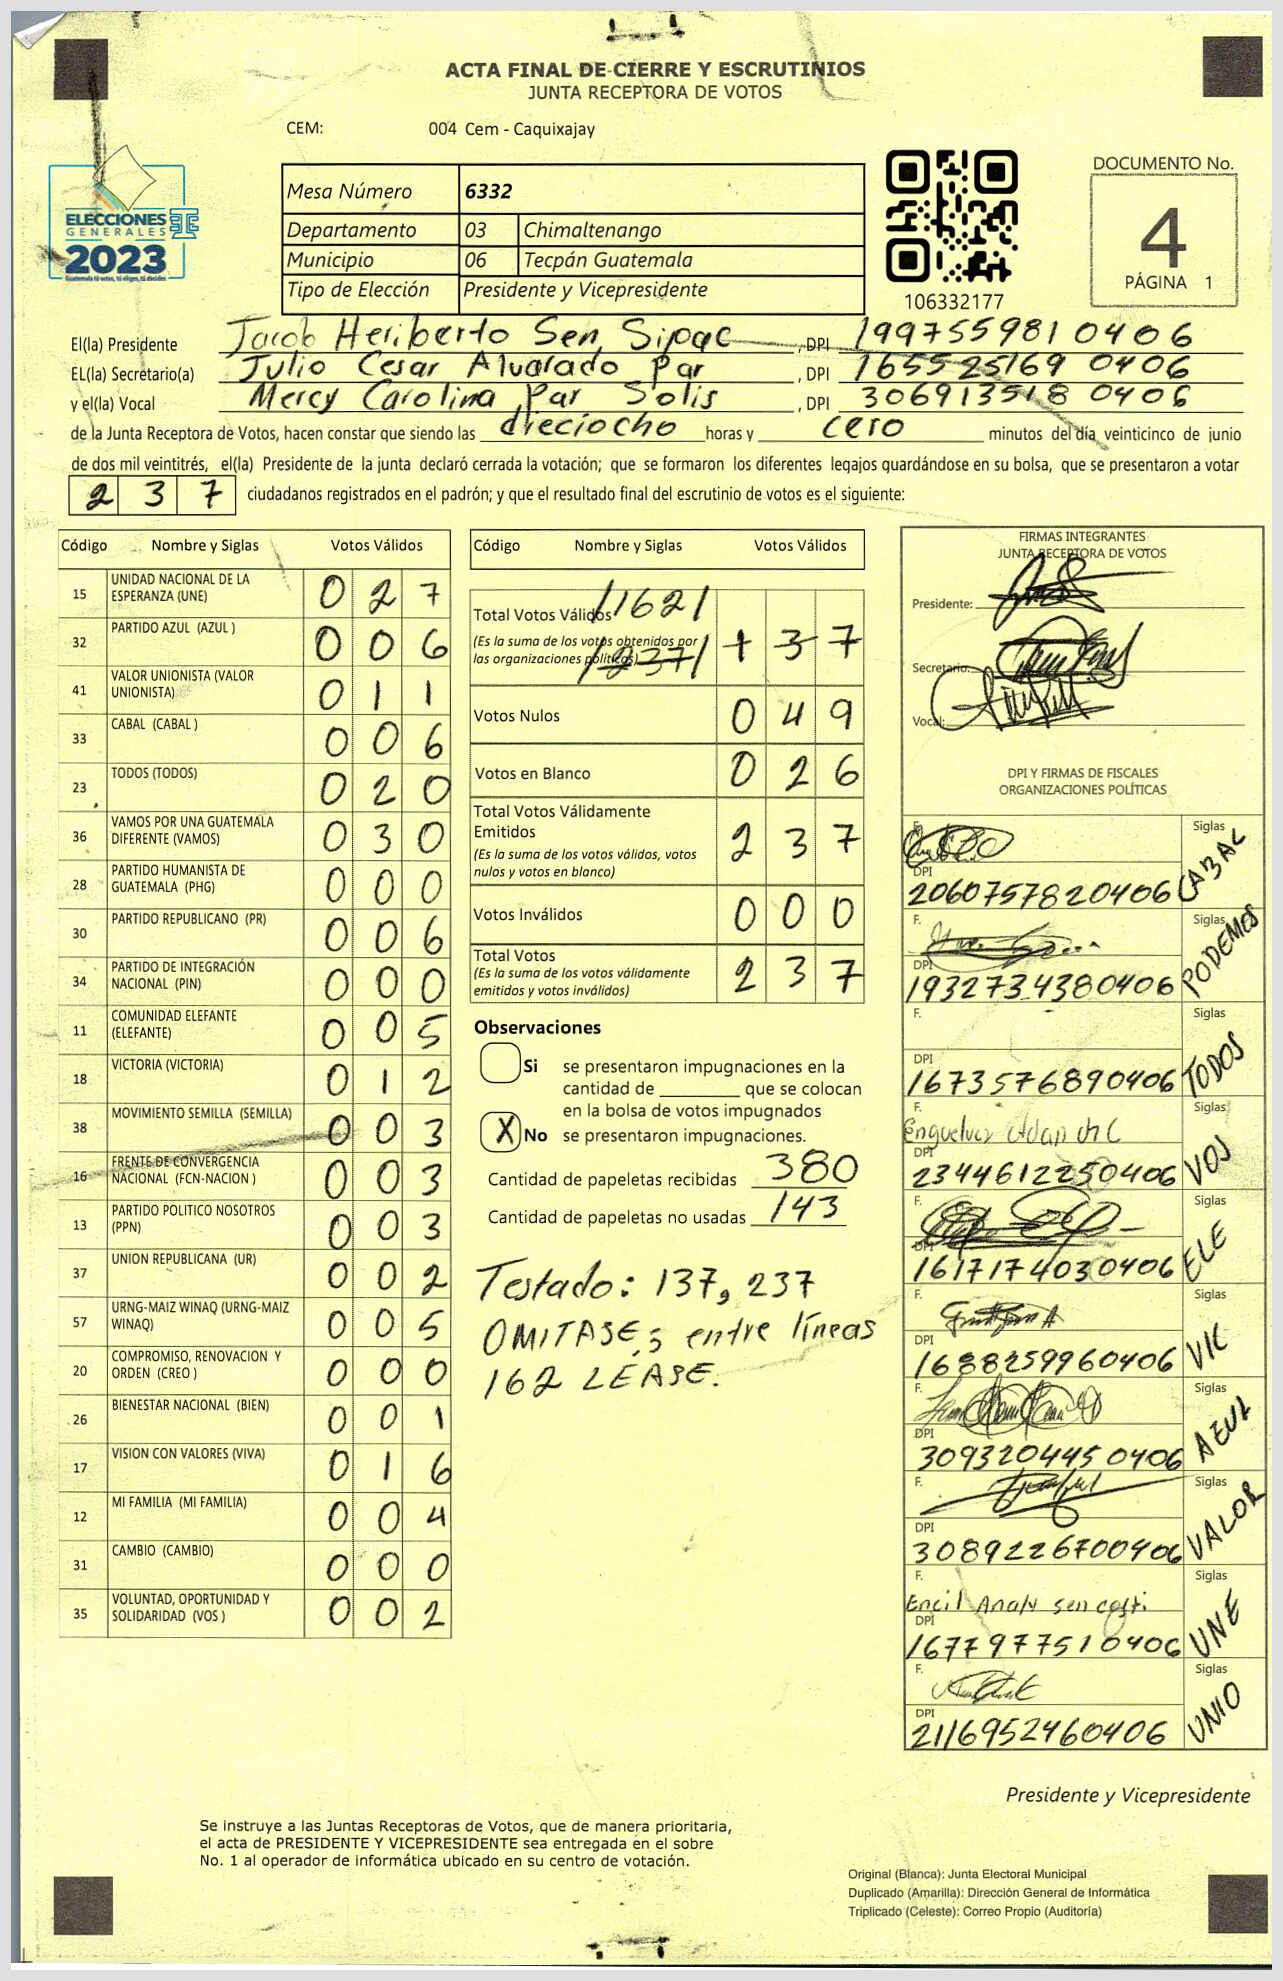 ACTA FINAL DE CIERRE Y ESCRUTINIOS
JUNTA RECEPTORA DE VOTOS
CEM: 004 Cem - Caquixajay
ELECCIONES
GENERALES
2023
Guatemala tú votas, tú eliges, tú decides
Mesa Número 6332
Departamento 03 Chimaltenango
Municipio 06 Tecpán Guatemala
Tipo de Elección Presidente y Vicepresidente
106332177
DOCUMENTO No.
4
PÁGINA 1
El(la) Presidente Jacob Heriberto Sen Sipac, DPI 199755981 0406
EL(la) Secretario(a) Julio Cesar Alvarado Par, DPI 165525169 0406
y el(la) Vocal Mercy Carolina Par Solis, DPI 306913518 0406
de la Junta Receptora de Votos, hacen constar que siendo las dieciocho horas y cero minutos del día veinticinco de junio
de dos mil veintitrés, el(la) Presidente de la junta declaró cerrada la votación; que se formaron los diferentes legajos guardándose en su bolsa, que se presentaron a votar
2 3 7 ciudadanos registrados en el padrón; y que el resultado final del escrutinio de votos es el siguiente:
Código Nombre y Siglas Votos Válidos
15 UNIDAD NACIONAL DE LA ESPERANZA (UNE) 0 2 7
32 PARTIDO AZUL (AZUL ) 0 0 6
41 VALOR UNIONISTA (VALOR UNIONISTA) 0 1 1
33 CABAL (CABAL ) 0 0 6
23 TODOS (TODOS) 0 2 0
36 VAMOS POR UNA GUATEMALA DIFERENTE (VAMOS) 0 3 0
28 PARTIDO HUMANISTA DE GUATEMALA (PHG) 0 0 0
30 PARTIDO REPUBLICANO (PR) 0 0 6
34 PARTIDO DE INTEGRACIÓN NACIONAL (PIN) 0 0 0
11 COMUNIDAD ELEFANTE (ELEFANTE) 0 0 5
18 VICTORIA (VICTORIA) 0 1 2
38 MOVIMIENTO SEMILLA (SEMILLA) 0 0 3
16 FRENTE DE CONVERGENCIA NACIONAL (FCN-NACION ) 0 0 3
13 PARTIDO POLITICO NOSOTROS (PPN) 0 0 3
37 UNION REPUBLICANA (UR) 0 0 2
57 URNG-MAIZ WINAQ (URNG-MAIZ WINAQ) 0 0 5
20 COMPROMISO, RENOVACION Y ORDEN (CREO ) 0 0 0
26 BIENESTAR NACIONAL (BIEN) 0 0 1
17 VISION CON VALORES (VIVA) 0 1 6
12 MI FAMILIA (MI FAMILIA) 0 0 4
31 CAMBIO (CAMBIO) 0 0 0
35 VOLUNTAD, OPORTUNIDAD Y SOLIDARIDAD (VOS ) 0 0 2
Código Nombre y Siglas Votos Válidos
Total Votos Válidos /162/
(Es la suma de los votos obtenidos por las organizaciones políticas) /237/ 1 3 7
Votos Nulos 0 4 9
Votos en Blanco 0 2 6
Total Votos Válidamente Emitidos 2 3 7
(Es la suma de los votos válidos, votos nulos y votos en blanco)
Votos Inválidos 0 0 0
Total Votos 2 3 7
(Es la suma de los votos válidamente emitidos y votos inválidos)
Observaciones
Si se presentaron impugnaciones en la
cantidad de ________ que se colocan
en la bolsa de votos impugnados
X No se presentaron impugnaciones.
Cantidad de papeletas recibidas 380
Cantidad de papeletas no usadas 143
Testado: 137, 237
OMITASE; entre líneas
162 LEASE.
FIRMAS INTEGRANTES
JUNTA RECEPTORA DE VOTOS
Presidente:
Secretario:
Vocal:
DPI Y FIRMAS DE FISCALES
ORGANIZACIONES POLÍTICAS
F. Siglas
DPI
2060757820406 CABAL
F. Siglas
DPI
1932734380406 PODEMOS
F. Siglas
DPI
1673576890406 TODOS
F. Siglas
DPI
2344612250406 VOS
F. Siglas
DPI
1617174030406 ELE
F. Siglas
DPI
1688259960406 VIC
F. Siglas
DPI
3093204450406 AZUL
F. Siglas
DPI
3089226700406 VALOR
F. Siglas
DPI
1677977510406 UNE
F. Siglas
DPI
2116952460406 UNIO
Presidente y Vicepresidente
Se instruye a las Juntas Receptoras de Votos, que de manera prioritaria,
el acta de PRESIDENTE Y VICEPRESIDENTE sea entregada en el sobre
No. 1 al operador de informática ubicado en su centro de votación.
Original (Blanca): Junta Electoral Municipal
Duplicado (Amarilla): Dirección General de Informática
Triplicado (Celeste): Correo Propio (Auditoría)